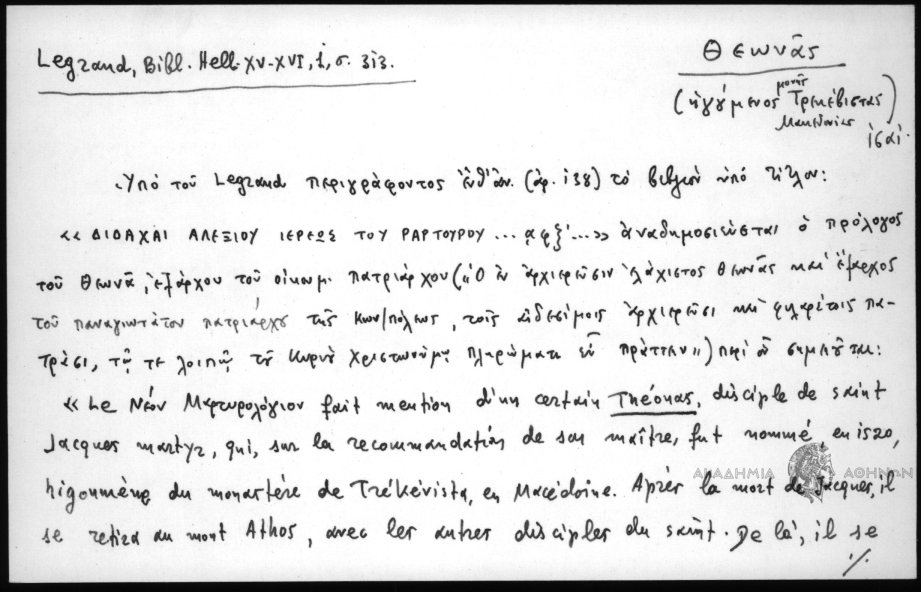 Legrand, Bibl. Hell. XV-XVI, 1, σ. 313.
Θεωνᾶς
(ἡγούμενος μονῆς Τρεκεβίστας Μακεδονίας)
Ὑπὸ τοῦ Legrand περιγράφοντος (ἀρ. 138) τὸ βιβλίον ὑπὸ τίτλον:
«ΔΙΔΑΧΑΙ ΑΛΕΞΙΟΥ ΙΕΡΕΩΣ ΤΟΥ ΡΑΡΤΟΥΡΟΥ ... ͵αφξ´...» ἀναδημοσιεύεται ὁ πρόλογος
τοῦ Θεωνᾶ, ἐξάρχου τοῦ οἰκουμ. πατριάρχου («Ὁ ἐν ἀρχιερεῦσιν ἐλάχιστος Θεωνᾶς καὶ ἔξαρχος
τοῦ παναγιωτάτου πατριάρχου τῆς Κων/πόλεως, τοῖς αἰδεσίμοις ἀρχιερεῦσι καὶ φιλαρέτοις πα-
τράσι, τῷ τε λοιπῷ τοῦ Κυρίου χριστωνύμῳ πληρώματι εὖ πράττειν») περὶ οὗ σημειοῦται:
«Le Νέον Μαρτυρολόγιον fait mention d'un certain Théonas, disciple de saint
Jacques martyr, qui, sur la recommandation de son maître, fut nommé en 1520,
higoumène du monastère de Trékévista, en Macédoine. Après la mort de Jacques, il
se retira au mont Athos, avec les autres disciples du saint. De là, il se
./.
ΑΚΑΔΗΜΙΑ ΑΘΗΝΩΝ